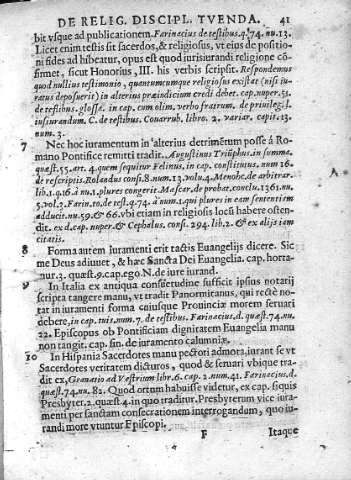 DE RELIG. DISCIPL. TVENDA. 41
bit vsque ad publicationem. Farinacius de testibus. q. 74. nu. 13.
Licet enim testis sit sacerdos, & religiosus, vt eius de positio
ni fides ad hibeatur, opus est quod iurisiurandi religione cõ
firmet, sicut Honorius, III. his verbis scripsit. Respondemus
quod nullius testimonio, quantumcumque religiosus existat (nisi iu-
ratus deposuerit) in alterius præiudicium credi debet. cap. nuper. 51.
de testibus. glossæ. in cap. cum olim. verbo fratrum. de priuileg. l.
iusiurandum. C. de testibus. Couarrub. libro. 2. variar. capit. 13.
num. 3.
7 Nec hoc iuramentum in alterius detrimẽtum posse à Ro-
mano Pontifice remitti tradit. Augustinus Triũphus in summa.
quæst. 55. art. 4. quem sequitur Felinus, in cap. constitutus, num 16.
de rescriptis. Rolandus cons. 8. num. 13. volu. 4. Menoch. de arbitrar.
lib. 1. q. 16. à nu. 1. plures congerit. Mascar. de probat. conclu. 1361. nu.
5. vol. 3. Farin. to. de test. q. 74. à num. 1. qui plures in eam sententiam
adducit. nu. 59. & 66. vbi etiam in religiosis locũ habere osten-
dit. ex d. cap. nuper. & Cephalus. consi. 294. lib. 2. & ex alijs iam
citatis.
8 Forma autem iuramenti erit tactis Euangelijs dicere. Sic
me Deus adiuuet, & hæc Sancta Dei Euangelia. cap. horta-
tur. 3. quæst. 9. cap. ego. N. de iure iurand.
9 In Italia ex antiqua consuetudine sufficit ipsius notarij
scripta tangere manu, vt tradit Panormitanus, qui rectè no-
tat in iuramenti forma cuiusque Prouinciæ morem seruari
debere, in cap. tuis. num. 7. de testibus. Farinacius. d. quæst. 74. nu.
22. Episcopus ob Pontificiam dignitatem Euangelia manu
non tangit. cap. fin. de iuramento calumniæ.
10 In Hispania Sacerdotes manu pectori admota, iurant se vt
Sacerdotes veritatem dicturos, quod & seruari vbique tra-
dit ex, Gratiano ad Vestrium libr. 6. cap. 2. num. 41. Farinacius. d.
quæst. 74. nu. 82. Quod ortum habuisse videtur, ex cap. siquis
Presbyter. 2. quæst. 4. in quo traditur. Presbyterum vice iura-
menti per sanctam consecrationem interrogandum, quo iu-
randi more vtuntur Episcopi.
F Itaque